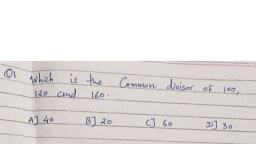 Q1 Which is the Common divisor of 100,
120 and 160.
A] 40 B] 20 C] 60 D] 30